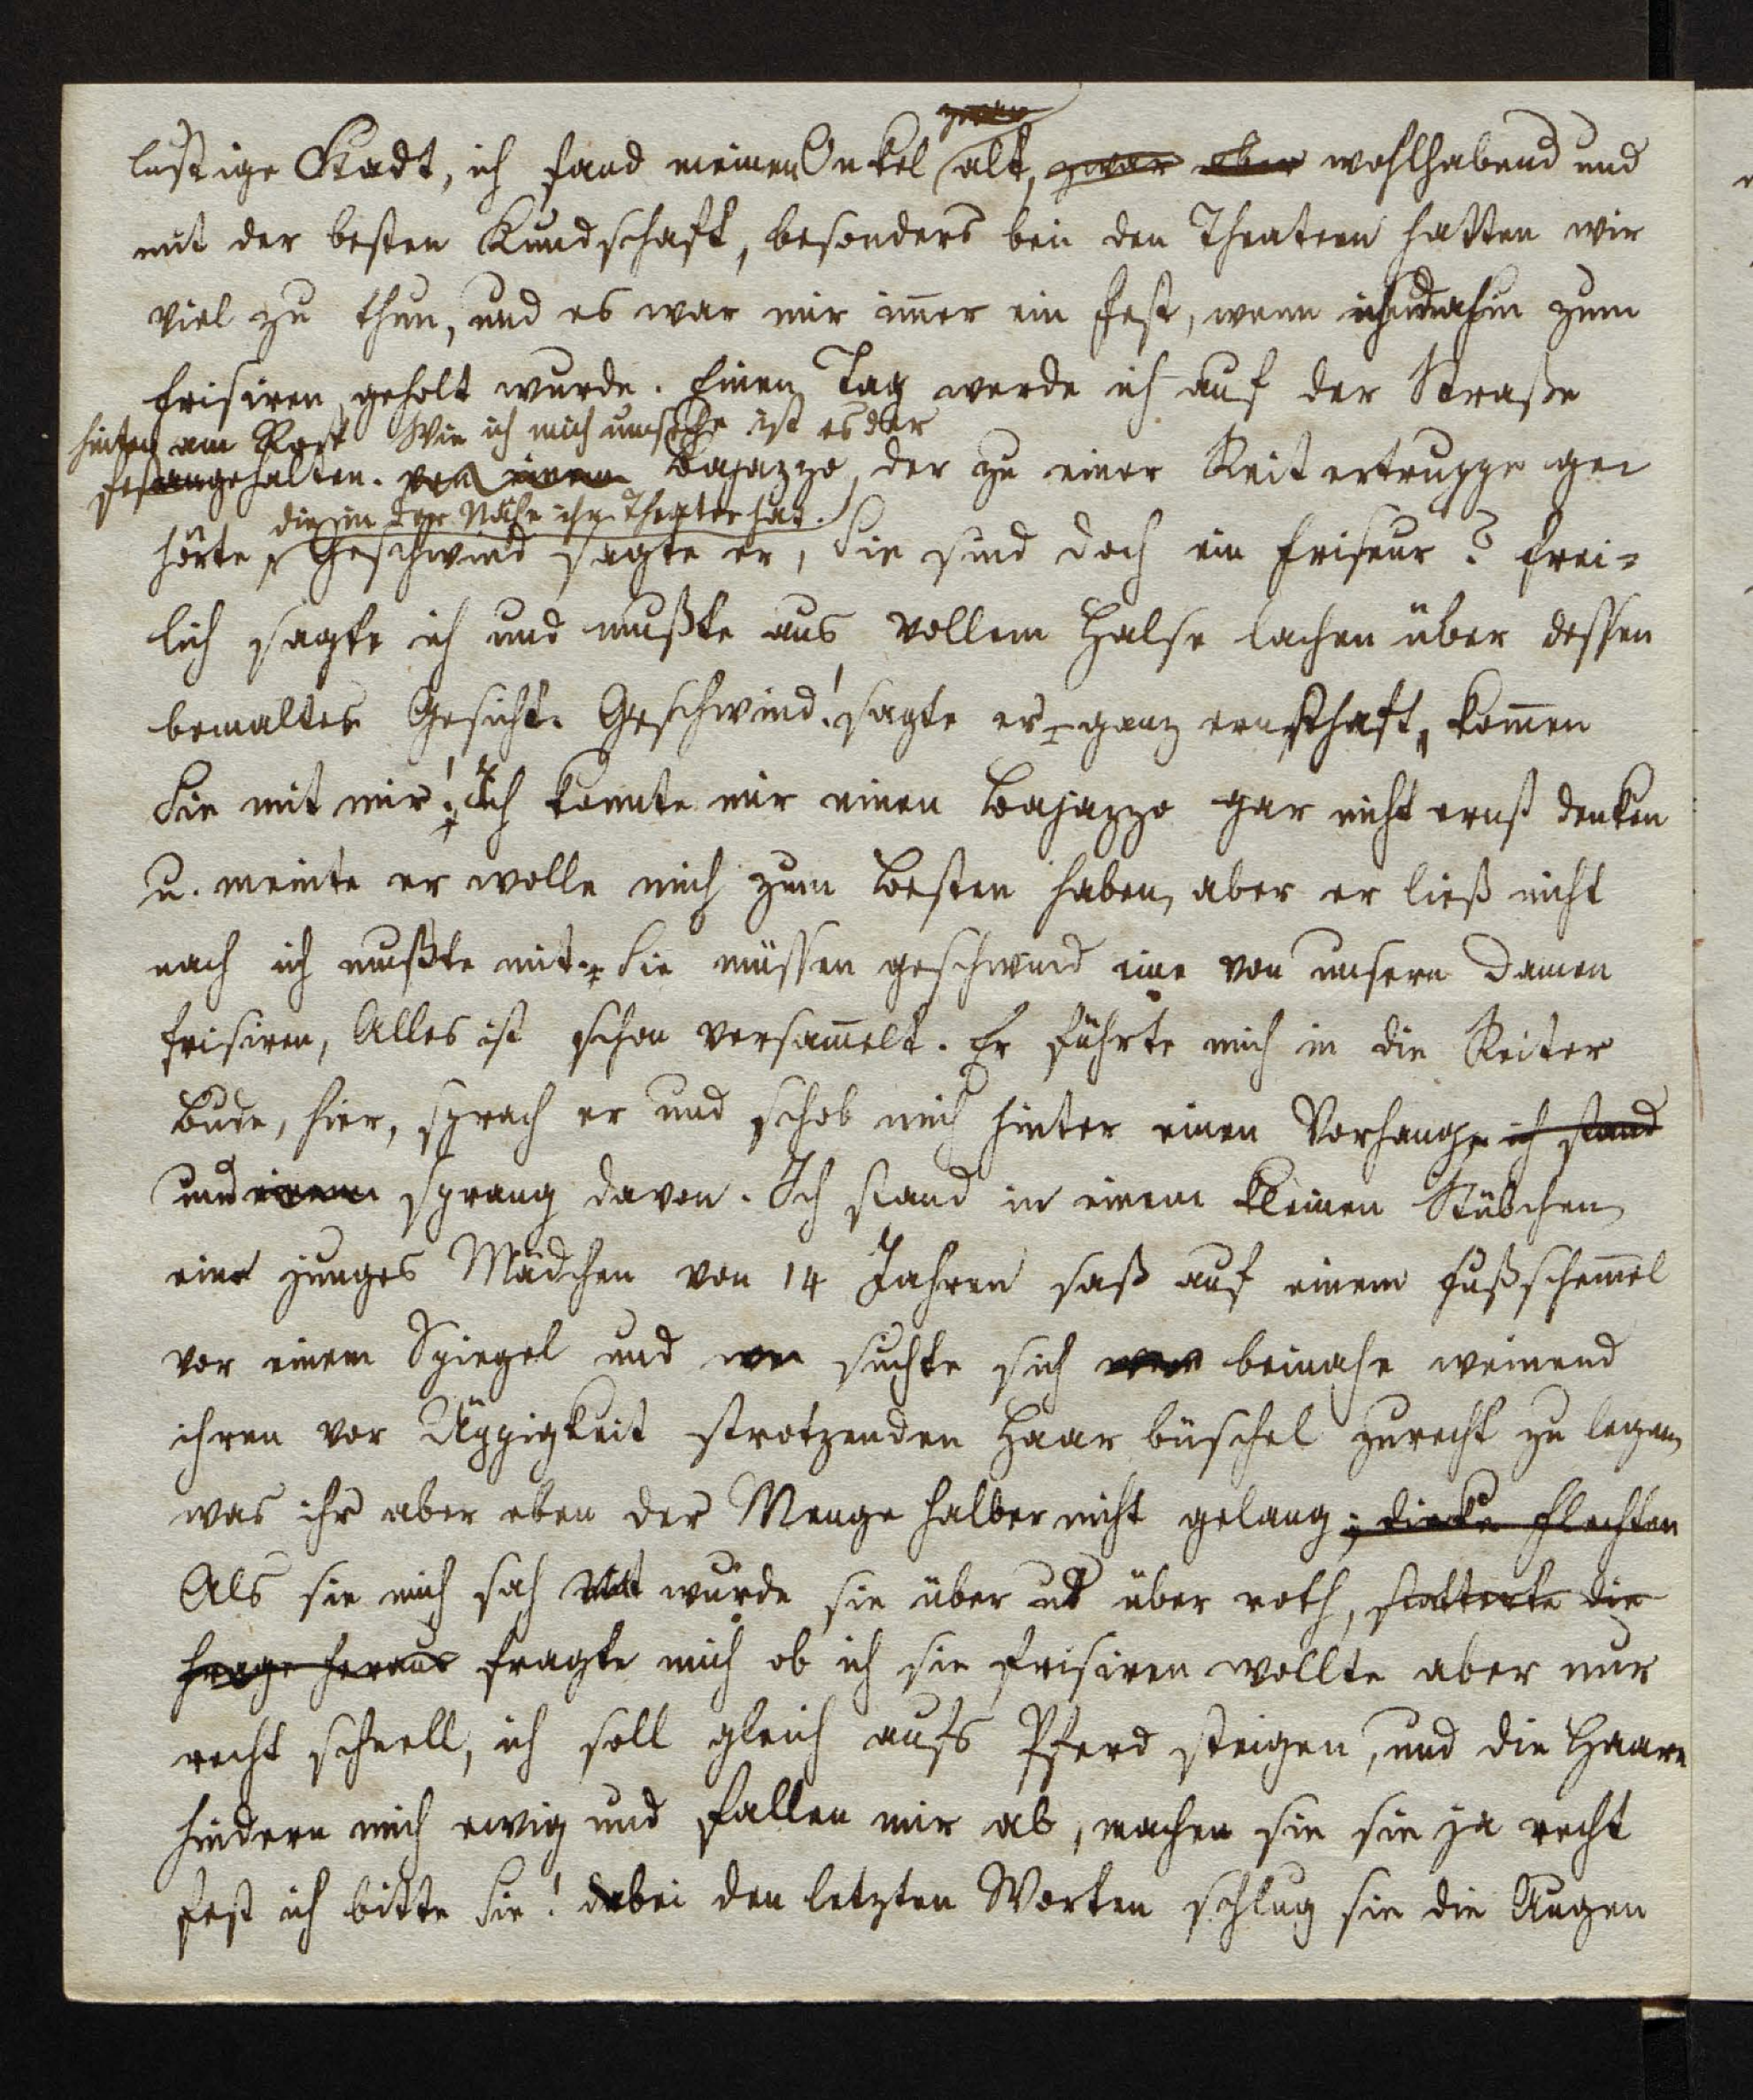 zwar
lustige Stadt, ich fand meinen Onkel alt, zwar aber wohlhabend und
mit der besten Kundschaft, besonders bei den Theatern hatten wir
viel zu thun, und es war mir im̅er ein Fest, wenn ich dahin zum
Frisiren geholt wurde. Einen Tag werde ich auf der Straße
hinten am Rock Wie ich mich umsehe ist es der
festangehalten. von einem Bajazzo, der zu einer Reitertruppe ge-
die in der Nähe ihr Theater hat.
hörte, Geschwind sagte er, Sie sind doch ein Friseur? Frei-
lich sagte ich und mußte aus vollem Halse lachen über dessen
bemaltes Gesicht. Geschwind! sagte er ganz ernsthaft, kom̅en
Sie mit mir! Ich konnte mir einen Bajazzo gar nicht ernst denken
u. meinte er wolle mich zum Besten haben, aber er ließ nicht
nach ich mußte mit. Sie müssen geschwind eine von unsern Damen
frisiren, Alles ist schon versam̅elt. Er führte mich in die Reiter
Bude, hier, sprach er und schob mich hinter einen Vorhang, ich stand
und einem sprang davon. Ich stand in einem kleinen Stübchen
ein junges Mädchen von 14 Jahren saß auf einem Fußschem̅el
vor einem Spiegel und suchte sich beinahe weinend
ihren vor Üppigkeit strotzenden Haarbüschel zurecht zu legen,
was ihr aber eben der Menge halber nicht gelang; dicke Flechten
Als sie mich sah wurde sie über ud über roth, stotterte die
Frage heraus fragte mich ob ich sie frisiren wollte aber nur
recht schnell, ich soll gleich aufs Pferd steigen, und die Haare
hindern mich ewig und fallen mir ab, machen sie sie ja recht
fest ich bitte Sie! bei den letzten Worten schlug sie die Augen